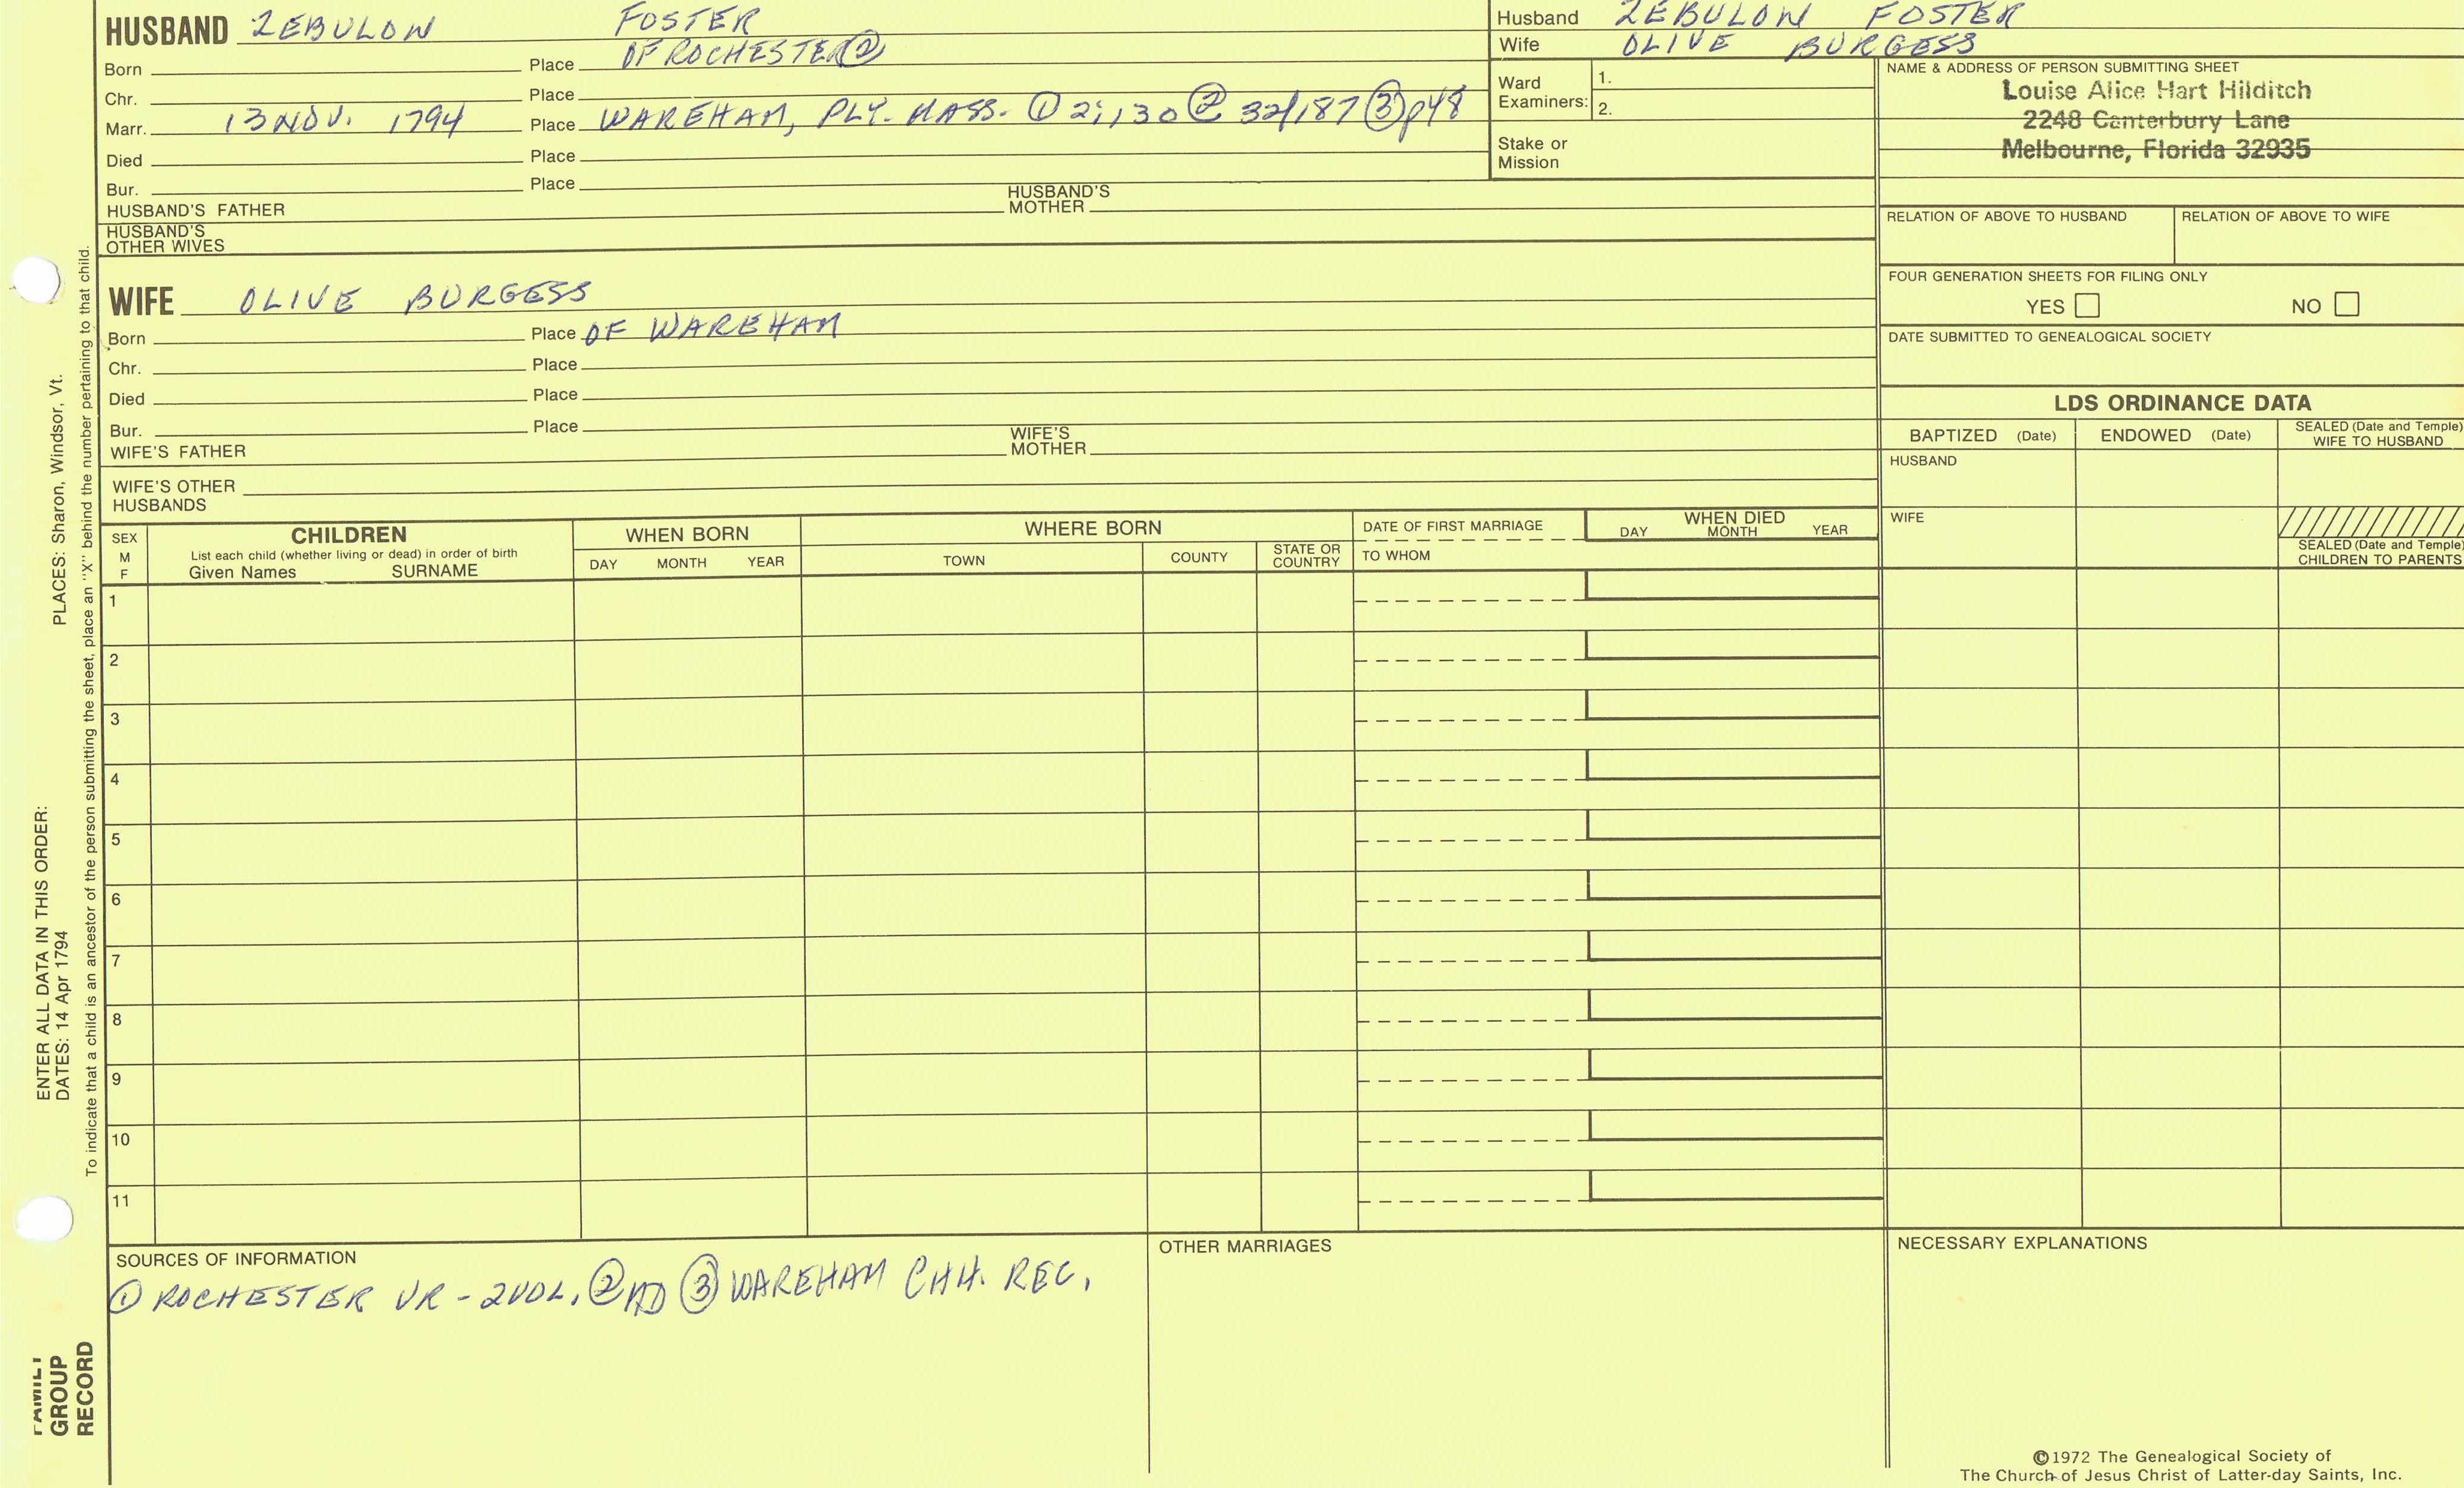 HUSBAND ZEBULON FOSTER
OF ROCHESTER ②
Born Place
Chr. Place
Marr. 13 NOV. 1794 Place WAREHAM, PLY. MASS. ① 2;130 ② 32/187 ③ p48
Died Place
Bur. Place
HUSBAND'S FATHER HUSBAND'S MOTHER
HUSBAND'S OTHER WIVES
WIFE OLIVE BURGESS
Born Place OF WAREHAM
Chr. Place
Died Place
Bur. Place
WIFE'S FATHER WIFE'S MOTHER
WIFE'S OTHER HUSBANDS
Husband ZEBULON FOSTER
Wife OLIVE BURGESS
Ward Examiners: 1.
2.
Stake or Mission
NAME & ADDRESS OF PERSON SUBMITTING SHEET
Louise Alice Hart Hilditch
2248 Canterbury Lane
Melbourne, Florida 32935
RELATION OF ABOVE TO HUSBAND RELATION OF ABOVE TO WIFE
FOUR GENERATION SHEETS FOR FILING ONLY
YES NO
DATE SUBMITTED TO GENEALOGICAL SOCIETY
LDS ORDINANCE DATA
BAPTIZED (Date) ENDOWED (Date) SEALED (Date and Temple) WIFE TO HUSBAND
HUSBAND
WIFE
SEALED (Date and Temple)
CHILDREN TO PARENTS
SEX M F
CHILDREN
List each child (whether living or dead) in order of birth
Given Names SURNAME
WHEN BORN
DAY MONTH YEAR
WHERE BORN
TOWN COUNTY STATE OR COUNTRY
DATE OF FIRST MARRIAGE
TO WHOM
WHEN DIED
DAY MONTH YEAR
1
2
3
4
5
6
7
8
9
10
11
SOURCES OF INFORMATION
① ROCHESTER VR - 2VOL. ② ③ WAREHAM CHH. REC.
OTHER MARRIAGES
NECESSARY EXPLANATIONS
©1972 The Genealogical Society of
The Church of Jesus Christ of Latter-day Saints, Inc.
ENTER ALL DATA IN THIS ORDER:
DATES: 14 Apr 1794 PLACES: Sharon, Windsor, Vt.
To indicate that a child is an ancestor of the person submitting the sheet, place an "X" behind the number pertaining to that child.
FAMILY
GROUP
RECORD